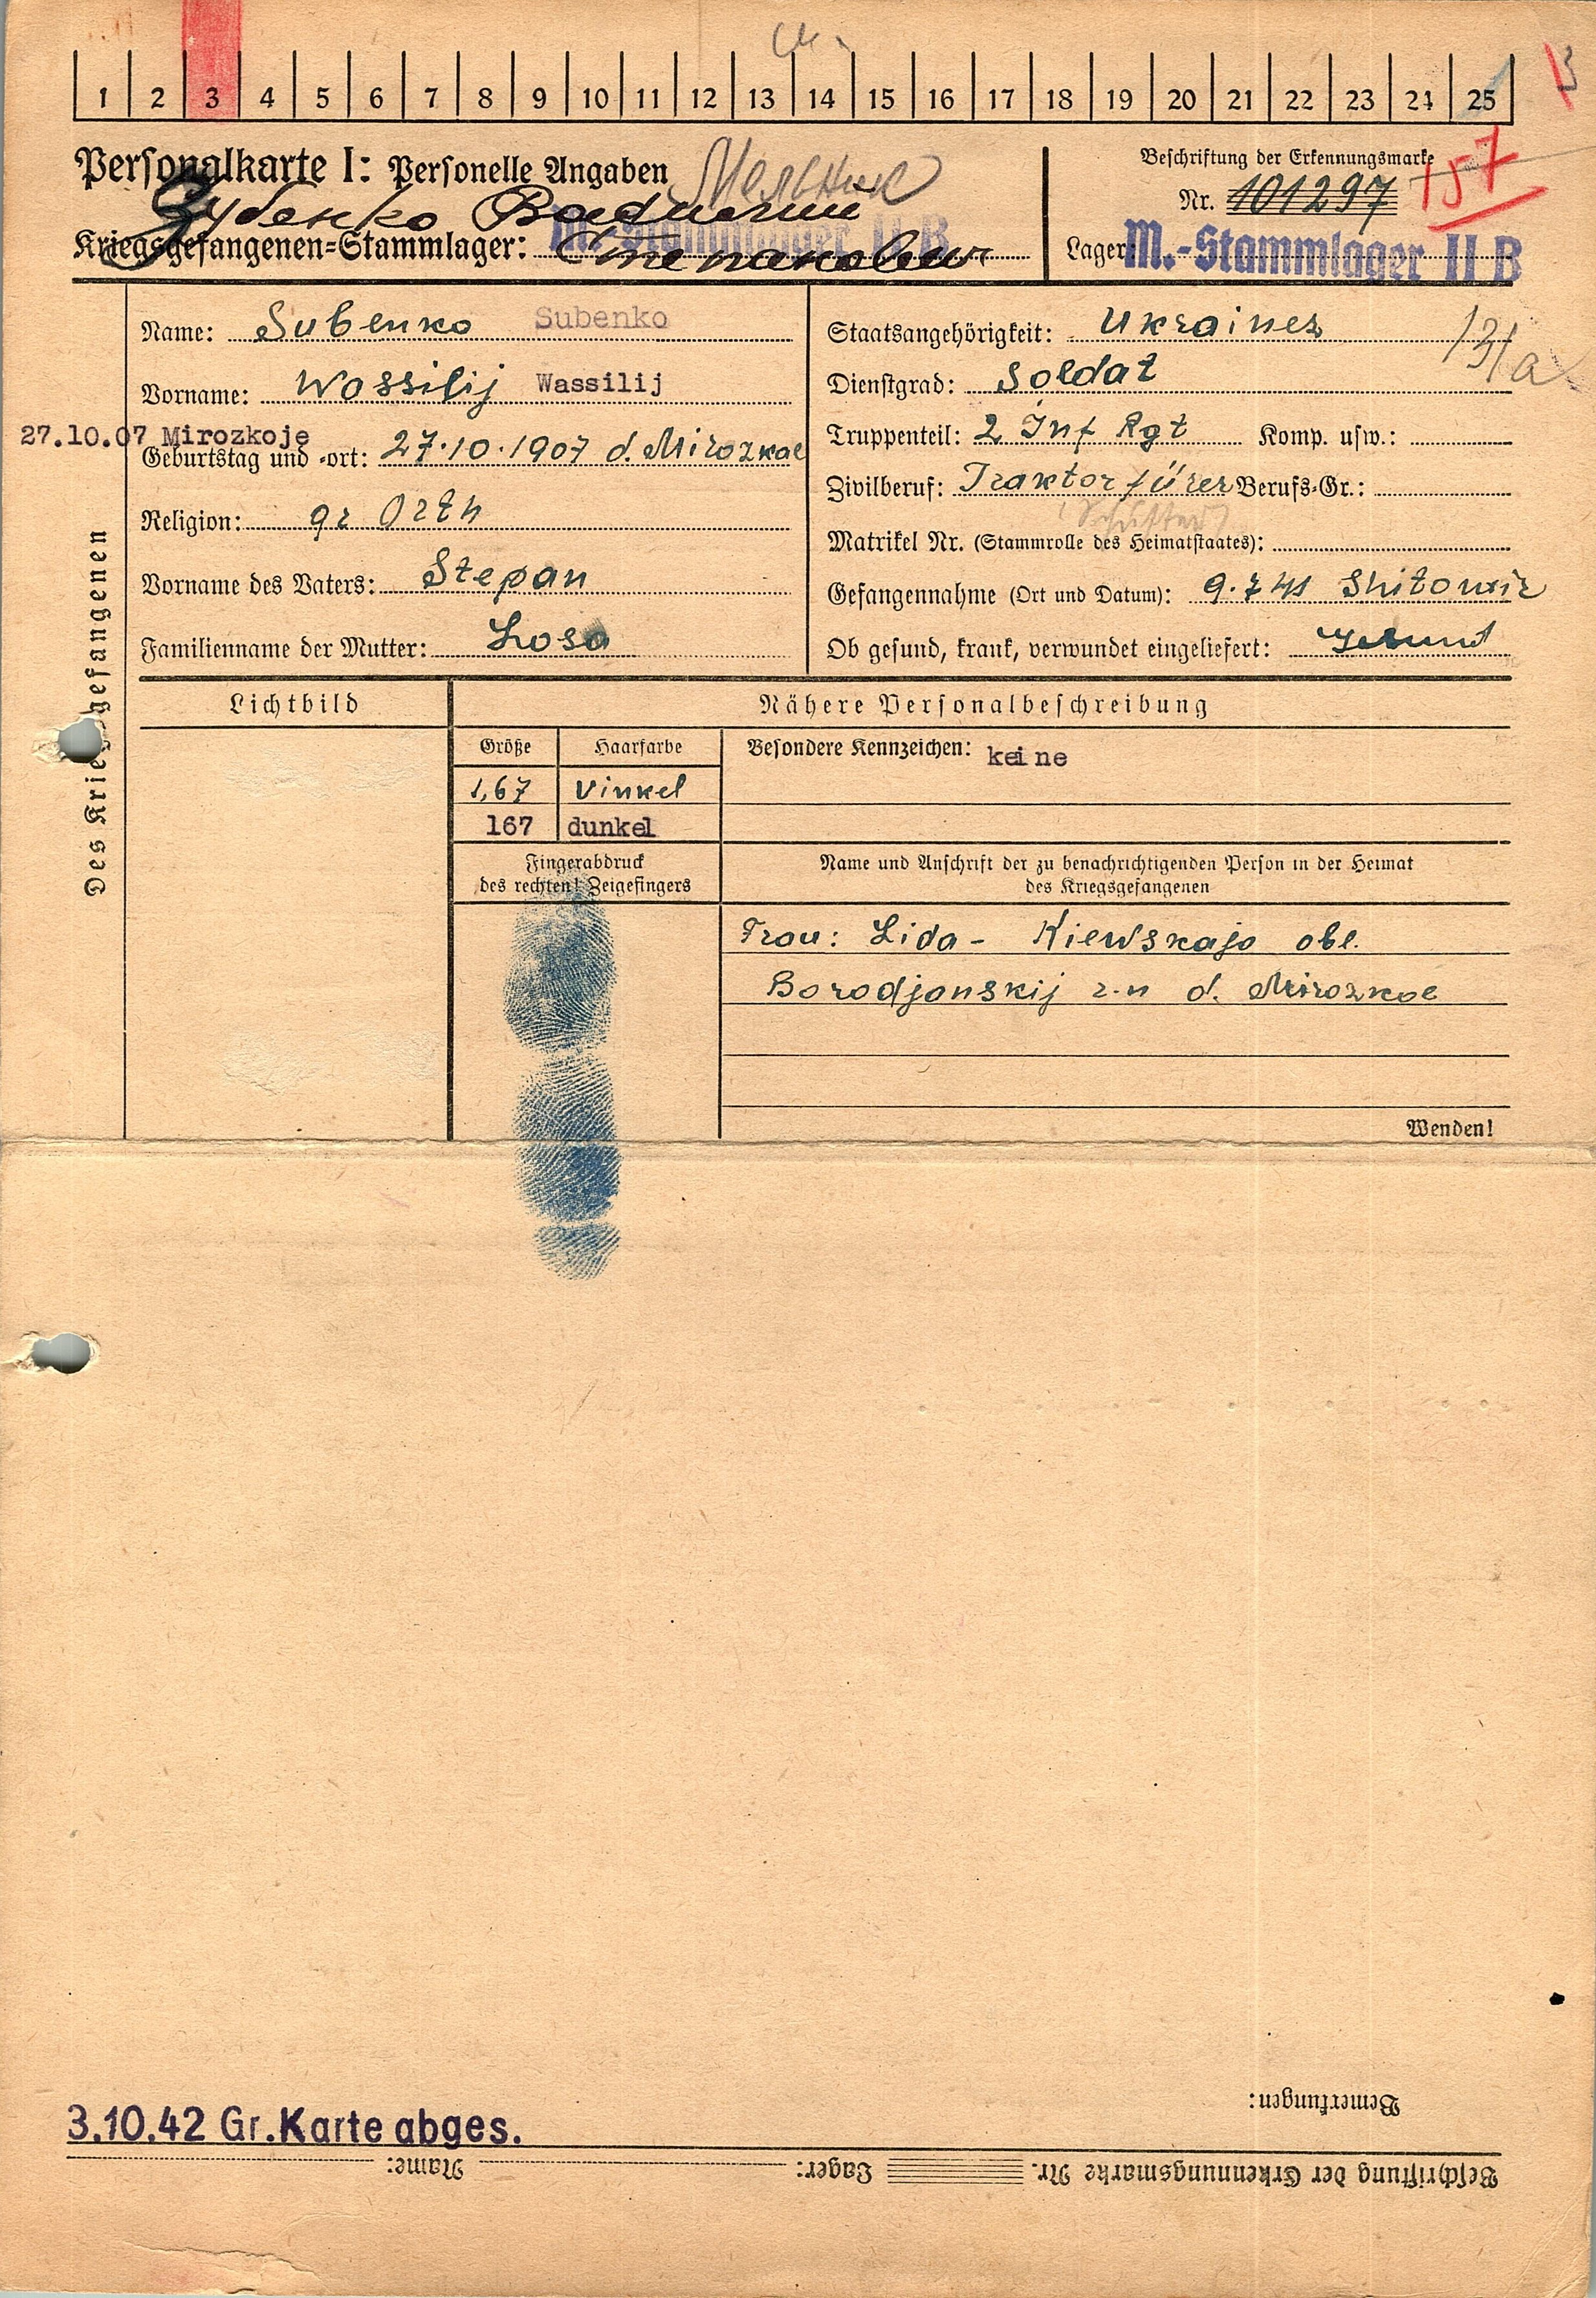 1 2 3 4 5 6 7 8 9 10 11 12 13 14 15 16 17 18 19 20 21 22 23 24 25
Personalkarte I: Personelle Angaben
Мельник
Зубенко Василий
Степанович
Kriegsgefangenen-Stammlager: M.-Stammlager II B
Beschriftung der Erkennungsmarke
Nr. 101297
157
Lager: M.-Stammlager II B
Des Kriegsgefangenen
Name: Subenko Subenko
Vorname: Wassilij Wassilij
27.10.07 Mirozkoje
Geburtstag und -ort: 27.10.1907 d. Mirozkoe
Religion: gr Orth
Vorname des Vaters: Stepan
Familienname der Mutter: Losa
Staatsangehörigkeit: Ukrainer
Dienstgrad: Soldat
Truppenteil: 2 Inf Rgt Komp. usw.:
Zivilberuf: Traktorfürer Berufs-Gr.:
Matrikel Nr. (Stammrolle des Heimatstaates):
Gefangennahme (Ort und Datum): 9.7 41 Shitomir
Ob gesund, krank, verwundet eingeliefert: Gesund
Lichtbild
Nähere Personalbeschreibung
Größe Haarfarbe Besondere Kennzeichen: keine
1,67 vinkel
167 dunkel
Fingerabdruck
des rechten! Zeigefingers
Name und Anschrift der zu benachrichtigenden Person in der Heimat
des Kriegsgefangenen
Frau: Lida - Kiewskaja obl.
Borodjanskij r-n d. Mirozkoe
Wenden!
Bemerkungen:
3.10.42 Gr. Karte abges.
Beschriftung der Erkennungsmarke Nr. Lager: Name: